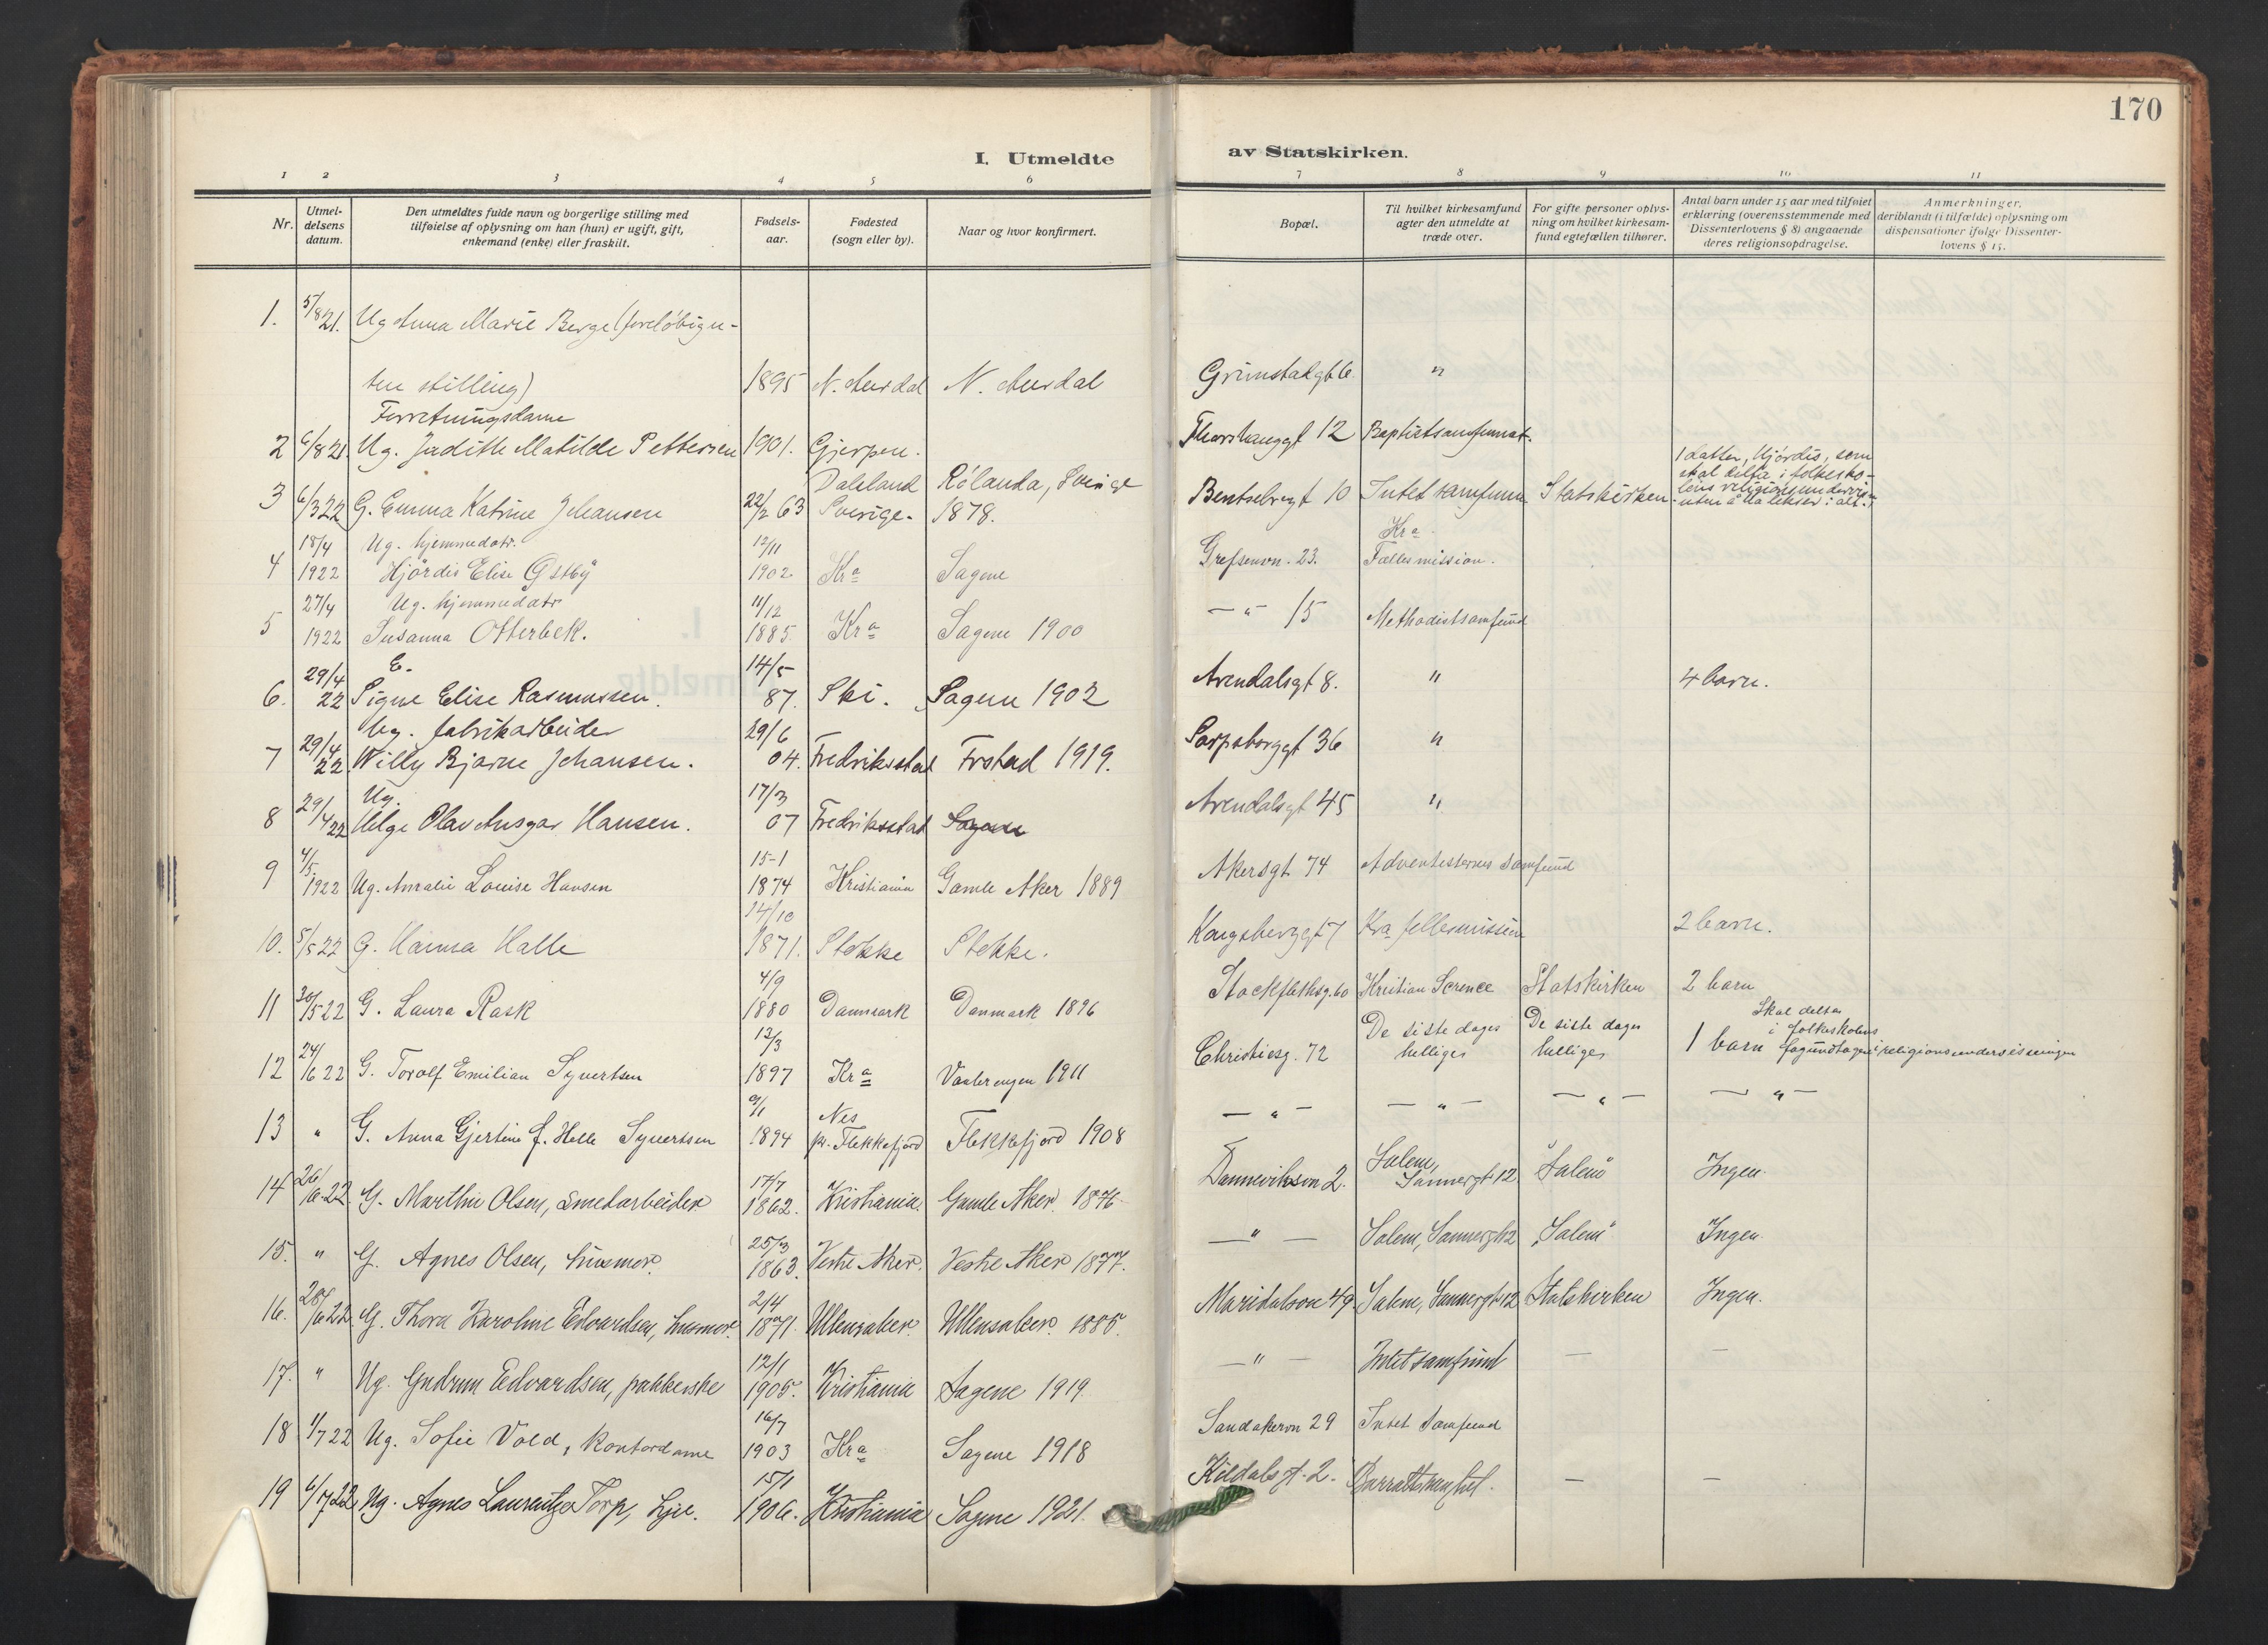 170
I. Utmeldte av Statskirken.
1 2 3 4 5 6 7 8 9 10 11
Nr. | Utmel-delsens datum. | Den utmeldtes fulde navn og borgerlige stilling med tilføielse af oplysning om han (hun) er ugift, gift, enkemand (enke) eller fraskilt. | Fødsels-aar. | Fødested (sogn eller by). | Naar og hvor konfirmert. | Bopæl. | Til hvilket kirkesamfund agter den utmeldte at træde over. | For gifte personer oplys-ning om hvilket kirkesam-fund egtefællen tilhører. | Antal barn under 15 aar med tilføiet erklæring (overensstemmende med Dissenterlovens § 8) angaaende deres religionsopdragelse. | Anmerkninger, deriblandt (i tilfælde) oplysning om dispensationer ifølge Dissenter-lovens § 15.
1. 5/8 21. Ug Anna Marie Berge (foreløbig u-
ten stilling) 1895 N. Aurdal N. Aurdal Grimstadgt 6 "
Forretningsdame
2 6/8 21. Ug. Judith Matilde Pettersen 1901. Gjerpen. Thorshauggt 12 Baptistsamfunnet.
3 6/3 22 G. Emma Katrine Johansen 22/2 63 Dalsland Sverige. Rölanda, Sverige 1878. Bentsebrugt 10 Intet samfunn Statskirken 1 datter, Hjördis, som skal delta i folkesko-lens religionsundervisn. uten å ha lekser i alt.
4 18/4 1922 Ug. hjemmedatr. Hjördis Elise Østby 12/11 1902. Kra Sagene Grefsenvn. 23. Kra Fællesmission.
5 27/4 1922 Ug. hjemmedatr Susanna Otterbek. 11/12 1885. Kra Sagene 1900 — " — 15 Methodistsamfund
6. 29/4 22 E. Signe Elise Rasmussen. 14/5 87. Ski. Sagene 1902 Arendalsgt 8. " 4 barn.
7 29/4 22. Ug. fabrikarbeider Willy Bjarne Johansen. 29/6 04. Fredriksstad Frstad 1919. Sarpsborggt 36 "
8 29/4 22 Ug. Helge Olav Ansgar Hansen. 17/3 07 Fredriksstad Sagene Arendalsgt 45 "
9 4/5 1922 Ug. Amalie Louise Hansen 15-1 1874 Kristiania Gamle Aker 1889 Akersgt 74 Adventisternes Samfund
10. 5/5 22 G. Hanna Halle 14/10 1871. Stokke Stokke. Kongsberggt 7 Kra fellesmission 2 barn.
11 30/5 22 G. Laura Rask 4/9 1880 Danmark Danmark 1896 Stockflethsg. 60 Kristian Science Statskirken 2 barn
12 24/6 22 G. Torolf Emilian Syvertsen 13/3 1897 Kra Vaalerengen 1911 Christiesg. 72 De siste dages helliges De siste dages helliges 1 barn Skal deltas i folkeskolens religionsundervisningen
13 " G. Anna Gjertine f. Helle Syvertsen 9/1 1894 Nes pr. Flekkefjord Flekkefjord 1908 — " — — " — — " — — " —
14 26/6 22 G. Marthin Olsen, smedarbeider 17/7 1862. Kristiania. Gamle Aker 1876. Dannevirksvn 2. Salem, Sannergt 12 "Salem" Ingen.
15. " G. Agnes Olsen, husmor. 25/3 1863. Vestre Aker. Vestre Aker 1877. — " — Salem, Sannergt 12 "Salem" Ingen.
16. 28/6 22. G. Thora Karoline Edvardsen, husmor. 2/4 1871. Ullensaker. Ullensaker. 1885. Maridalsvn 49. Salem, Sannergt 12 Statskirken Ingen.
17. " Ug. Gudrun Edvardsen, pakkerske 12/1 1905. Kristiania Sagene 1919. — " — Intet samfund — —
18 1/7 22 Ug. Sofie Vold, Kontordame 16/7 1903 Kra Sagene 1918 Sandakervn 29 Intet Samfund
19 6/7 22 Ug. Agnes Laurentze Torp, hjv. 15/1 1906. Kristiania Sagene 1921. Kildalsgt. 2. — —